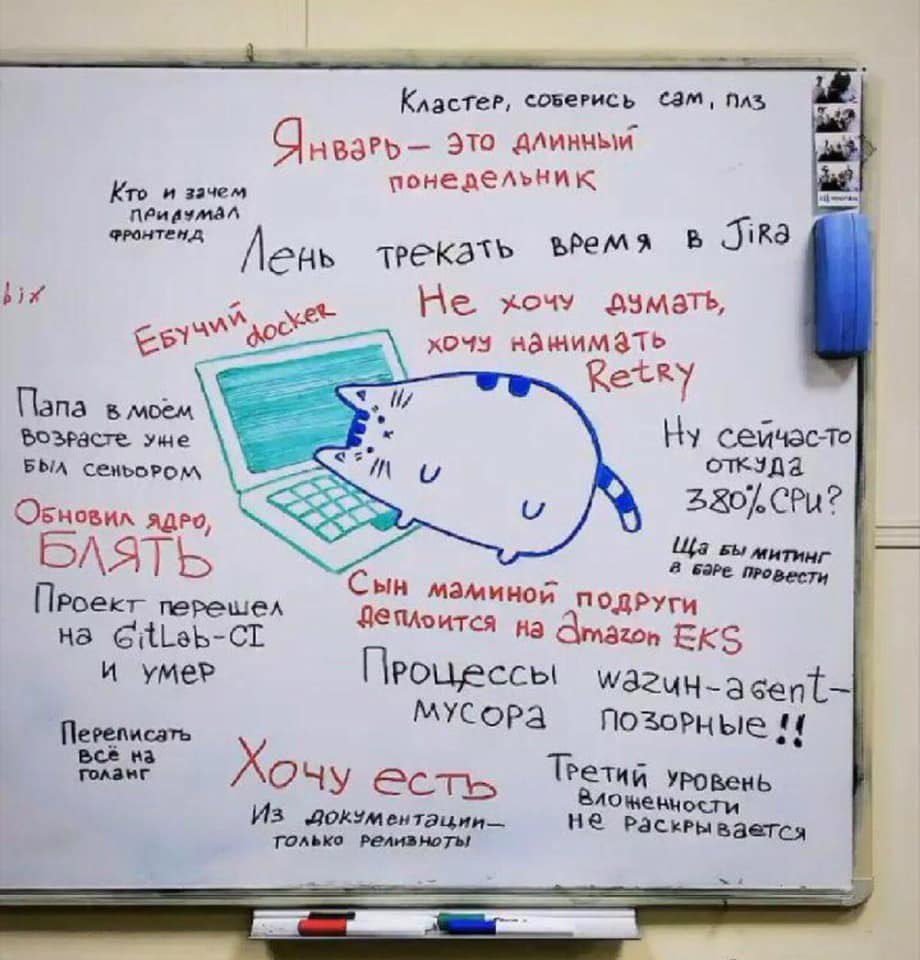 Кластер, соберись сам, плз
Январь — это длинный
понедельник
Кто и зачем
придумал
фронтенд
Лень трекать время в Jira
bix
Ебучий docker
Не хочу думать,
хочу нажимать
Retry
Папа в моём
возрасте уже
был сеньором
Ну сейчас-то
откуда
380% CPU?
Обновил ядро,
БЛЯТЬ
Ща бы митинг
в баре провести
Проект перешел
на GitLab-CI
и умер
Сын маминой подруги
деплоится на Amazon EKS
Процессы
мусора
wazuh-agent —
позорные!!
Переписать
всё на
голанг
Хочу есть
Из документации —
только релизноты
Третий уровень
вложенности
не раскрывается